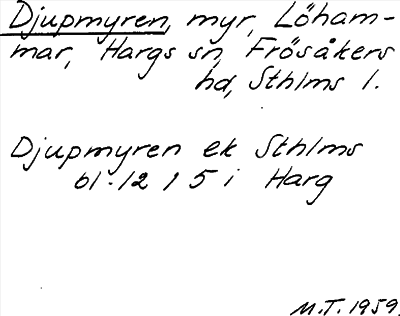 Djupmyren, myr, Löham-
mar, Hargs sn, Frösåkers
hd, Sthlms l.
Djupmyren ek Sthlms
bl. 12 1 5 i Harg
M.T. 1959.